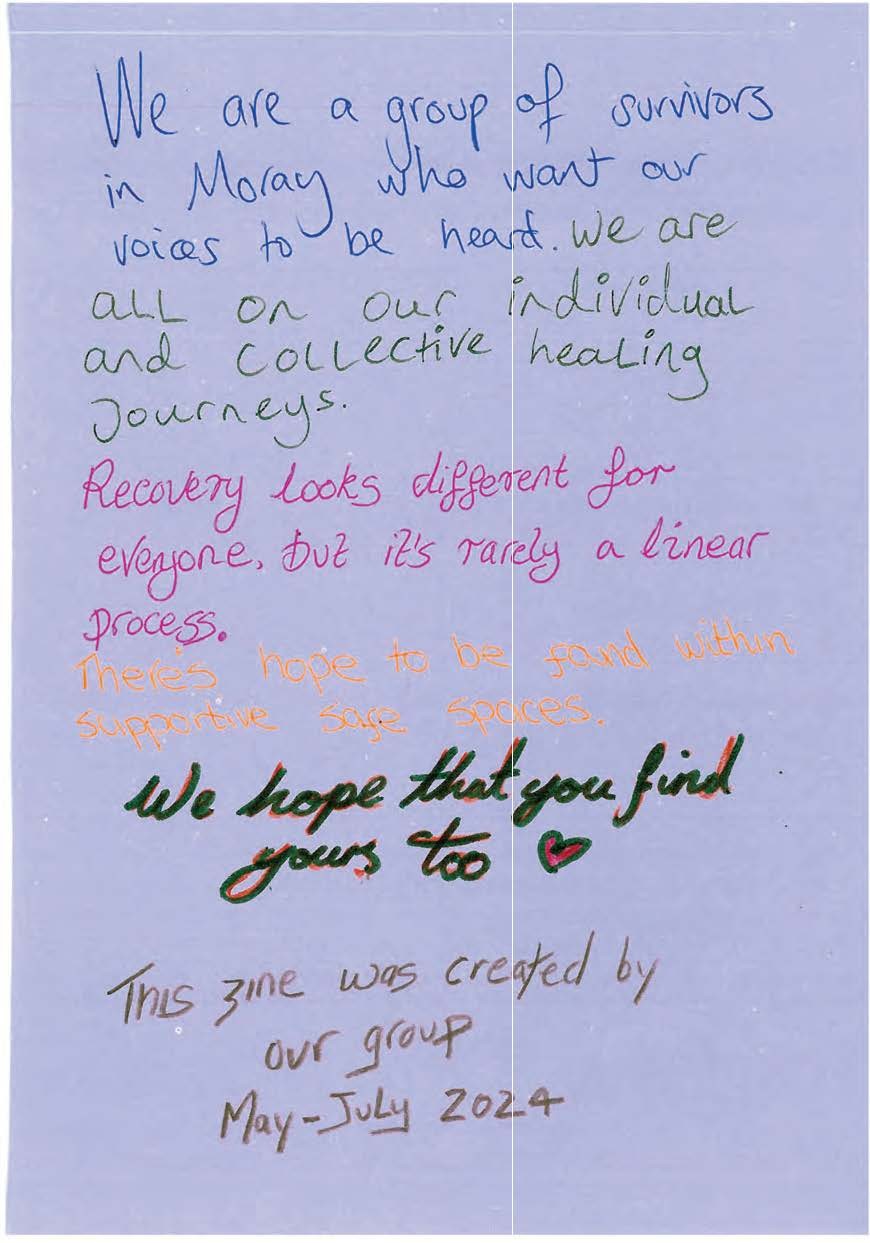 We are a group of survivors
in Moray who want our
voices to be heard. We are
all on our individual
and collective healing
Journeys.
Recovery looks different for
everyone, but it's rarely a linear
process.
There's hope to be found within
supportive safe spaces.
We hope that you find
yours too
This zine was created by
our group
May-July 2024